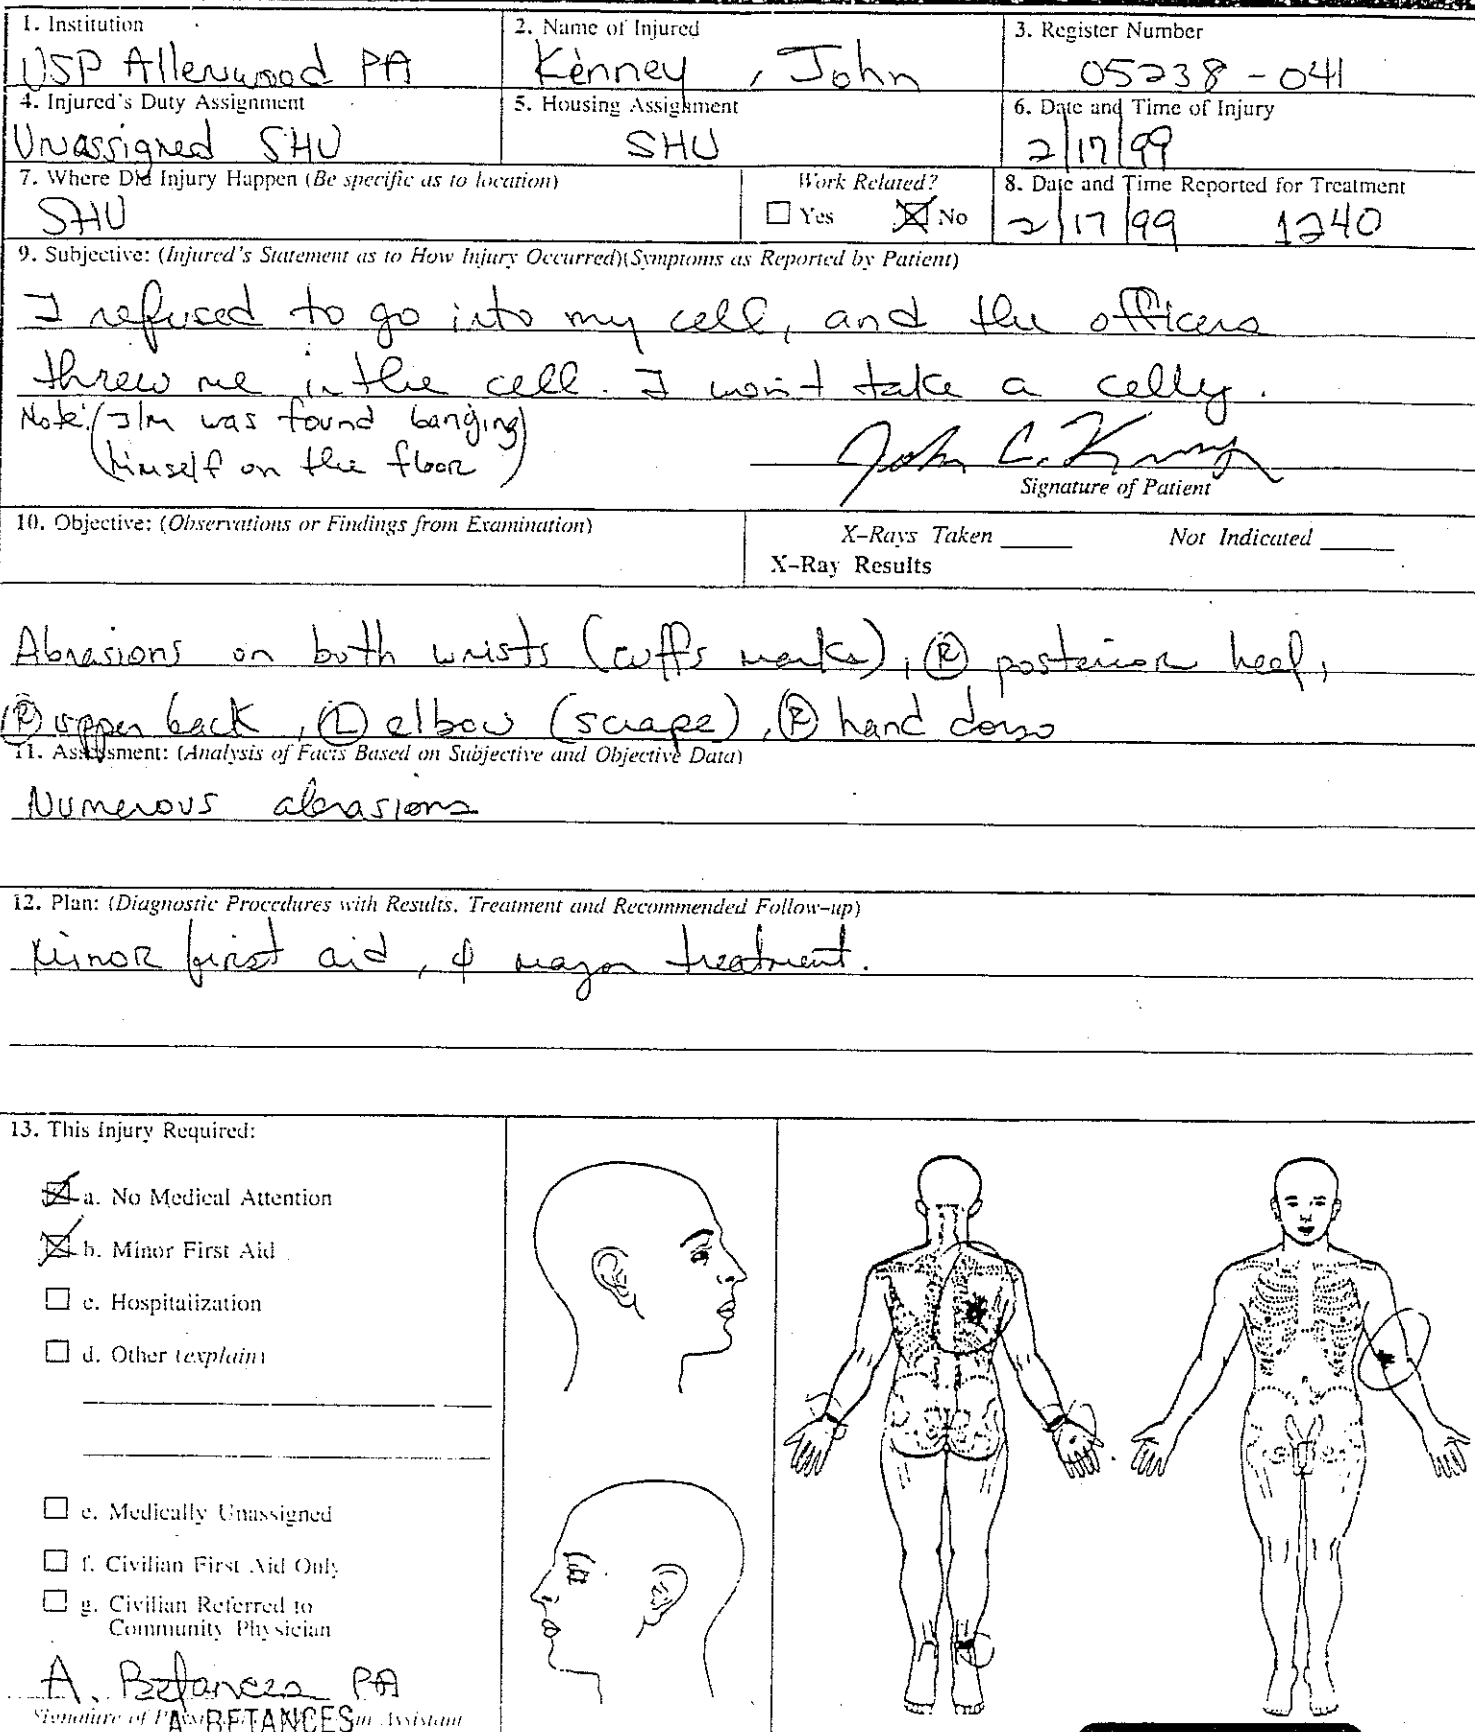 1. Institution
USP Allenwood PA
2. Name of Injured
Kenney, John
3. Register Number
05238-041
4. Injured's Duty Assignment
Unassigned SHU
5. Housing Assignment
SHU
6. Date and Time of Injury
2/17/99
7. Where Did Injury Happen (Be specific as to location)
SHU
Work Related?
Yes No
8. Date and Time Reported for Treatment
2/17/99 1240
9. Subjective: (Injured's Statement as to How Injury Occurred)(Symptoms as Reported by Patient)
I refused to go into my cell, and the officers
threw me in the cell. I won't take a celly.
Note: (I/M was found banging
himself on the floor)
Signature of Patient
10. Objective: (Observations or Findings from Examination)
X-Rays Taken Not Indicated
X-Ray Results
Abrasions on both wrists (cuffs marks), (R) posterior heel,
(R) upper back, (L) elbow (scrape), (R) hand dorso
11. Assessment: (Analysis of Facts Based on Subjective and Objective Data)
Numerous abrasions
12. Plan: (Diagnostic Procedures with Results, Treatment and Recommended Follow-up)
Minor first aid, ϕ major treatment.
13. This Injury Required:
a. No Medical Attention
b. Minor First Aid
c. Hospitalization
d. Other (explain)
e. Medically Unassigned
f. Civilian First Aid Only
g. Civilian Referred to
Community Physician
A. Betances PA
Signature of Assistant
A. BETANCES